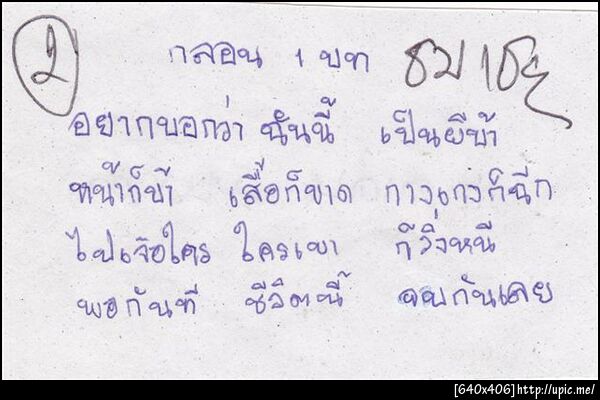 2
กลอน 1 บท
อยากบอกว่า ฉันนี้ เป็นผีบ้า
หน้าก็บ้า เสื้อก็ขาด กางเกงก็ฉีก
ไปเจอใคร ใครเขา ก็วิ่งหนี
พอกันที ชีวิตนี้ จบกันเลย
[640x406]http://upic.me/